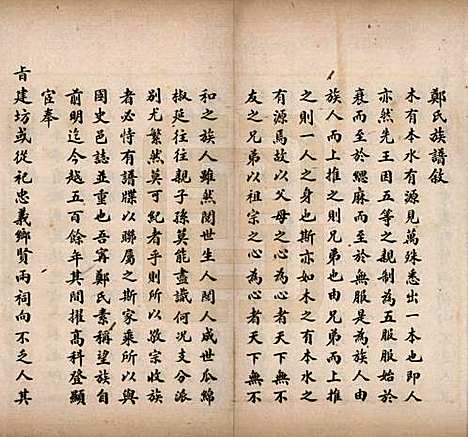 鄭氏族譜敘
木有本水有源見萬殊悉出一本也即人
亦然先王因五等之親制為五服服始於
衰而至於緦麻而至於無服是為族人由
族人而上推之則兄弟也由兄弟而上推
之則一人之身也斯亦如木之有本水之
有源焉故以父母之心為心者天下無不
友之兄弟以祖宗之心為心者天下無不
和之族人雖然閱世生人閱人成世瓜綿
椒延往往親子孫莫能盡識何况支分派
別尤繁然莫可紀者乎則所以敬宗收族
者必恃有譜牒以聯屬之斯家乘所以與
國史邑誌並重也吾寗鄭氏素稱望族自
前明迄今越五百餘年其間擢高科登顯
宦奉
旨建坊或從祀忠義鄉賢兩祠向不乏人其